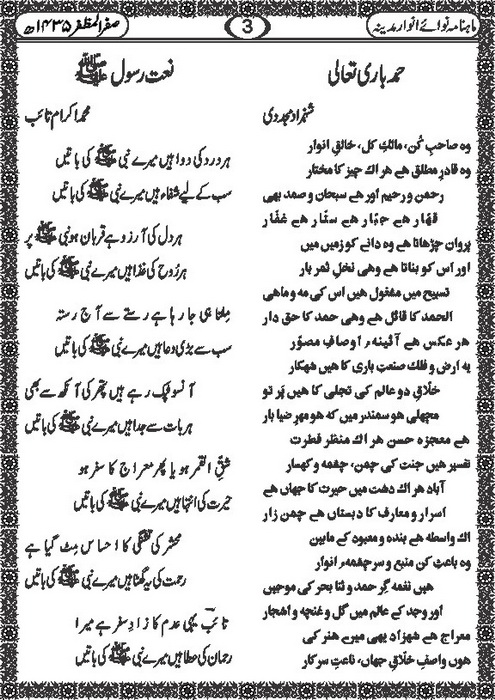 ماہنامہ نوائے انوار مدینہ
3
صفر المظفر ۱۴۳۵ھ
حمد باری تعالی
شہزاد مجددی
وہ صاحبِ کُن، مالکِ کل، خالقِ انوار
وہ قادرِ مطلق ھے ھر اك چیز کا مختار
رحمن و رحیم اور ھے سبحان و صمد بھی
قھّار ھے جبّار ھے ستّار ھے غفّار
پروان چڑھاتا ھے وہ دانے کو زمیں میں
اور اس کو بناتا ھے وھی نخلِ ثمر بار
تسبیح میں مشغول ھیں اس کی مہ و ماھی
الحمد کا قائل ھے وھی حمد کا حق دار
ھر عکس ھے آئینہء اوصافِ مصوّر
یہ ارض و فلك صنعتِ باری کا ھیں شھکار
خلّاقِ دو عالم کی تجلی کا ھیں پَر تو
مچھلی ھو سمندر میں کہ ھو مھرِ ضیا بار
ھے معجزہ حسن ھر اك منظرِ فطرت
تفسیر ھیں جنت کی چمن، چشمہ و کھسار
آباد ھر اك دشت میں حیرت کا جھاں ھے
اسرار و معارف کا دبستاں ھے چمن زار
اك واسطہ ھے بندہ و معبود کے مابین
وہ باعثِ کن منبع و سرچشمہء انوار
ھیں نغمہ گرِ حمد و ثنا بحر کی موجیں
اور وجد کے عالم میں گل و غنچہ و اشجار
معراج ھے شھزاد یھی میرے ھنر کی
ھوں واصفِ خلّاقِ جھاں، ناعتِ سرکار
نعت رسول ﷺ
محمد اکرام تائب
ہر درد کی دوا ہیں میرے نبی ﷺ کی باتیں
سب کے لیے شفاء ہیں میرے نبی ﷺ کی باتیں
ہر دل کی آرزو ہے قربان ہو نبی ﷺ پر
ہر رُوح کی غذا ہیں میرے نبی ﷺ کی باتیں
مِلتا ہی جا رہا ہے رستے سے آج رستہ
سب سے بڑی دعا ہیں میرے نبی ﷺ کی باتیں
آنسو ٹپک رہے ہیں پتھر کی آنکھ سے بھی
ہر بات سے جدا ہیں میرے نبی ﷺ کی باتیں
شقّ القمر ہو یا پھر معراج کا سفر ہو
حیرت کی انتہا ہیں میرے نبی ﷺ کی باتیں
محشر کی تشنگی کا احساس مِٹ گیا ہے
رحمت کی یہ گھٹا ہیں میرے نبی ﷺ کی باتیں
تائب یہی عدم کا زادِ سفر ہے میرا
رحمان کی عطا ہیں میرے نبی ﷺ کی باتیں